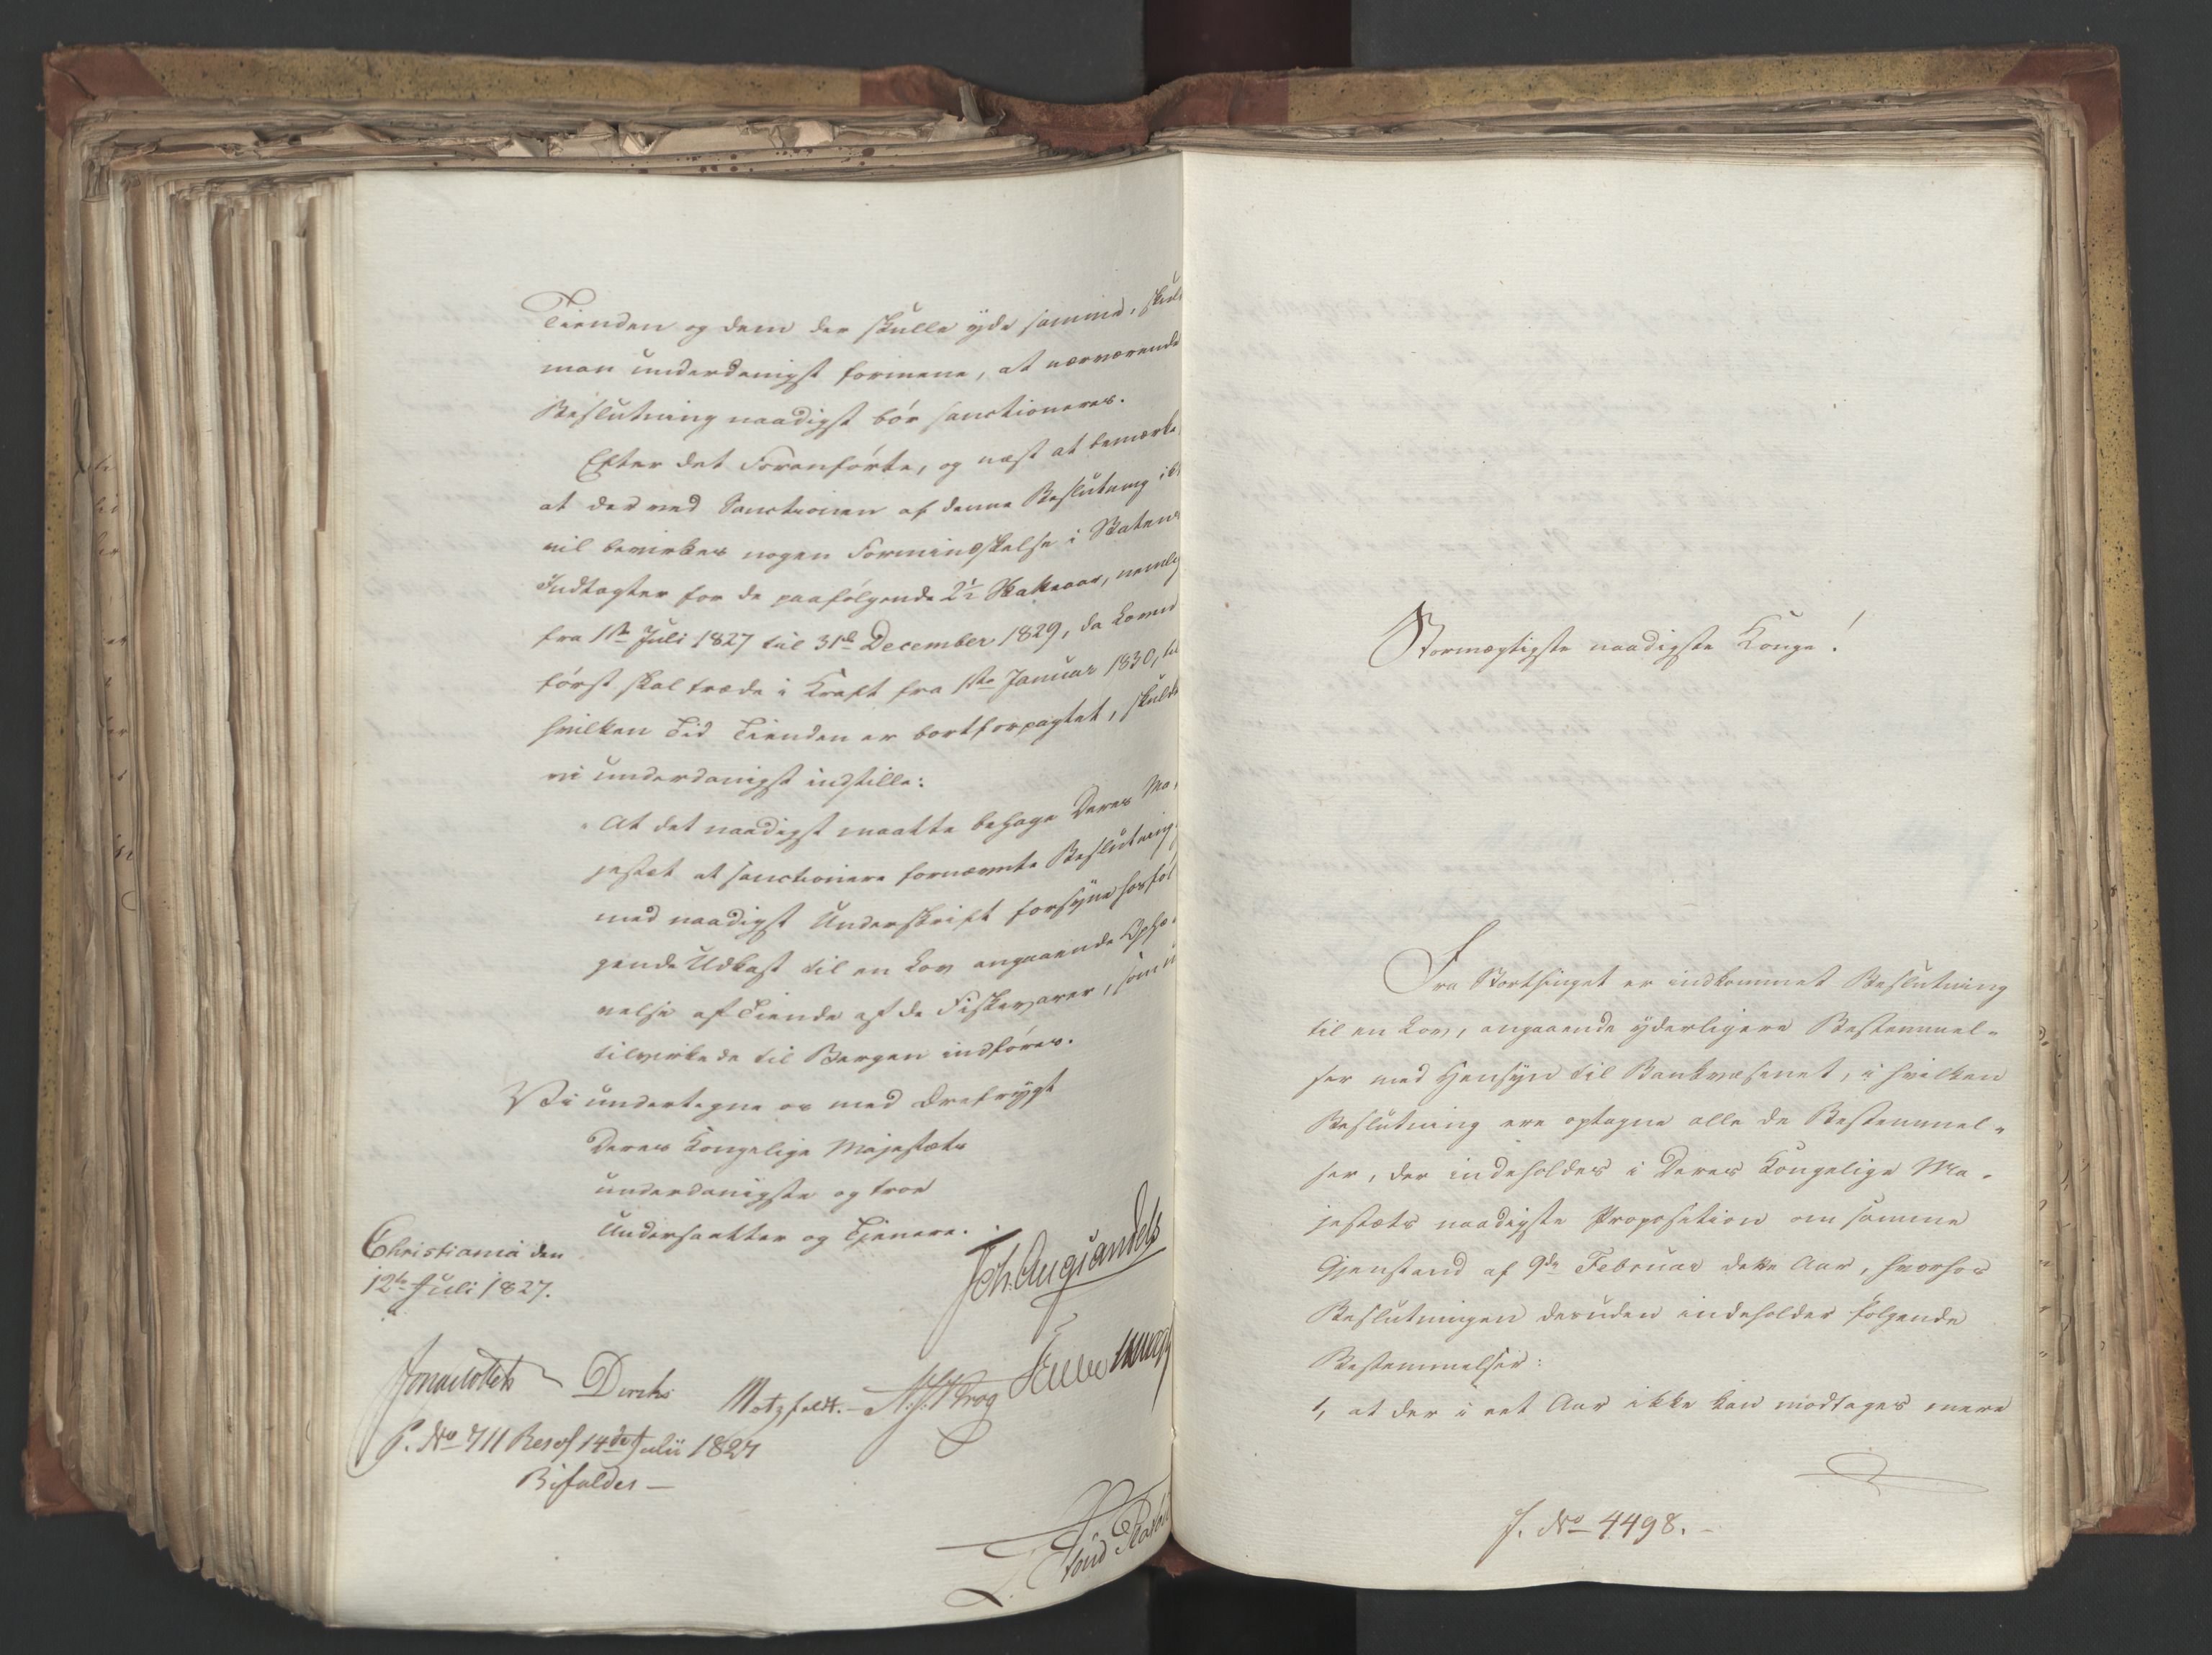 Tienden og dem der skulle yde samme, skul
man underdanigst formene, at nærværende
Beslutning naadigst bør sanctioneres.
Efter det Foranførte, og næst at bemærke,
at der ved Sanctionen af denne Beslutning
vil bevirkes nogen Formindskelse i Statens
Indtægter for de paafølgende 2½ Skatteaar, nemlig
fra 1ste Juli 1827 til 31te December 1829, da Loven
først skal træde i Kraft fra 1ste Januar 1830, til
hvilken Tid Tienden er bortforpagtet, skulde
vi underdanigst indstille:
"At det naadigst maatte behage Deres Ma-
jestæt at sanctionere fornævnte Beslutning,
med naadigst Underskrift forsyne hosføl
gende Udkast til en Lov angaaende Ophæ-
velse af Tiende af de Fiskevarer, som
tilvirkede til Bergen indføres.
Vi undertegne os med Ærefrygt
Deres Kongelige Majestæts
underdanigste og troe
Undersaatter og Tjenere.
Christiania den
12te Juli 1827.
Joh. Aug. Sandels
Jonas Collett Diriks Motzfeldt. N. J. Krog
P. No 711 Res. af 14de Julii 1827
Bifaldes —
Stormægtigste naadigste Konge!
Fra Storthinget er indkommet Beslutning
til en Lov, angaaende yderligere Bestemmel-
ser med Hensyn til Bankvæsenet, i hvilken
Beslutning ere optagne alle de Bestemmel-
ser, der indeholdes i Deres Kongelige Ma-
jestæts naadigste Proposition om samme
Gjenstand af 9de Februar dette Aar, hvorhos
Beslutningen desuden indeholder følgende
Bestemmelser:
1, at der i eet Aar ikke kan modtages mere
J. No 4498. -